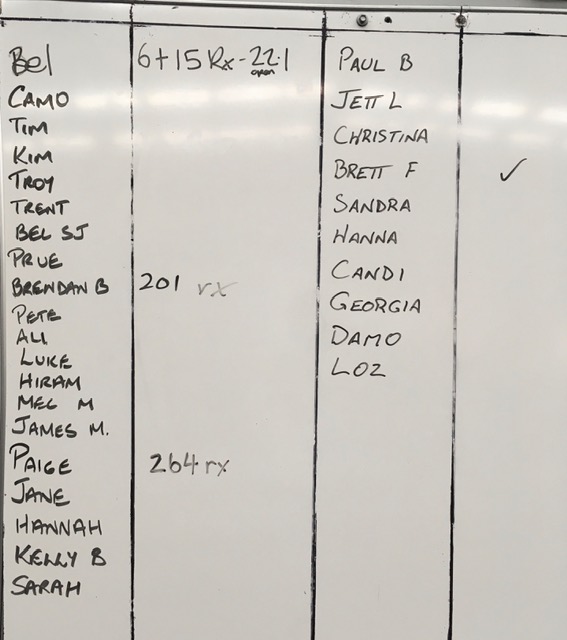 Bel 6+15 Rx-22.1
open
CAMO
TIM
KIM
TROY
TRENT
BEL SJ
PRUE
BRENDAN B 201 rx
PETE
ALI
LUKE
HIRAM
MEL M
JAMES M.
PAIGE 264 rx
JANE
HANNAH
KELLY B
SARAH
PAUL B
JETT L
CHRISTINA
BRETT F ✓
SANDRA
HANNA
CANDI
GEORGIA
DAMO
LOZ